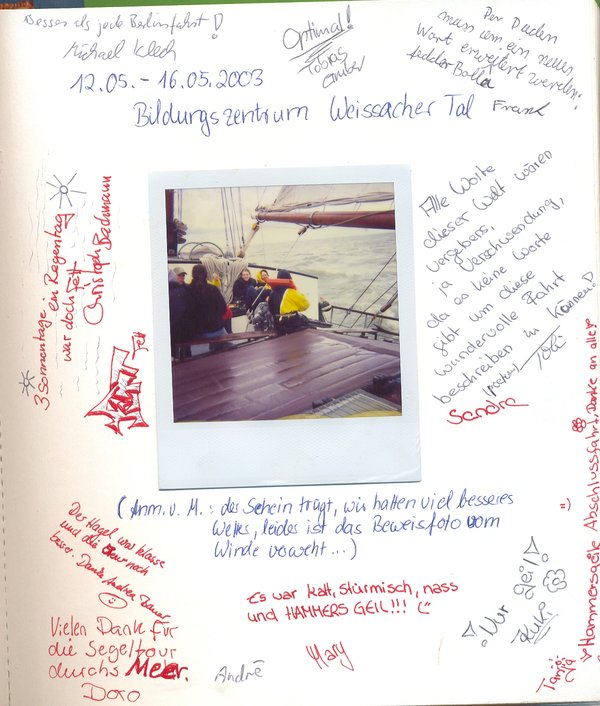 Besser als jede Berlinfahrt!
Michael Klech
Optimal!
Tobias
Gruber
Der Duden
muss um ein neues
Wort erweitert werden:
Frank
12.05. - 16.05.2003
Bildungszentrum Weissacher Tal
3 Sonnentage ein Regentag
war doch Fett
Christoph Bachmann
Fett
Alle Worte
dieser Welt wären
vergebens,
ja Verschwendung,
da es keine Worte
gibt um diese
wundervolle Fahrt
beschreiben zu können!
(poetow) Tobi
Sandra
(Anm. v. M.: der Schein trügt, wir hatten viel besseres
Wetter, leider ist das Beweisfoto vom
Winde verweht...)
Der Hagel war klasse
und die Crew noch
besser. Danke Andrea
Vielen Dank für
die Segeltour
durchs Meer.
Doro
André
Es war kalt, stürmisch, nass
und HAMMERS GEIL!!!
Mary
Nur geil!
Kuki
Hammersgeile Abschlussfahrt, Danke an alle!
=)
Tanja